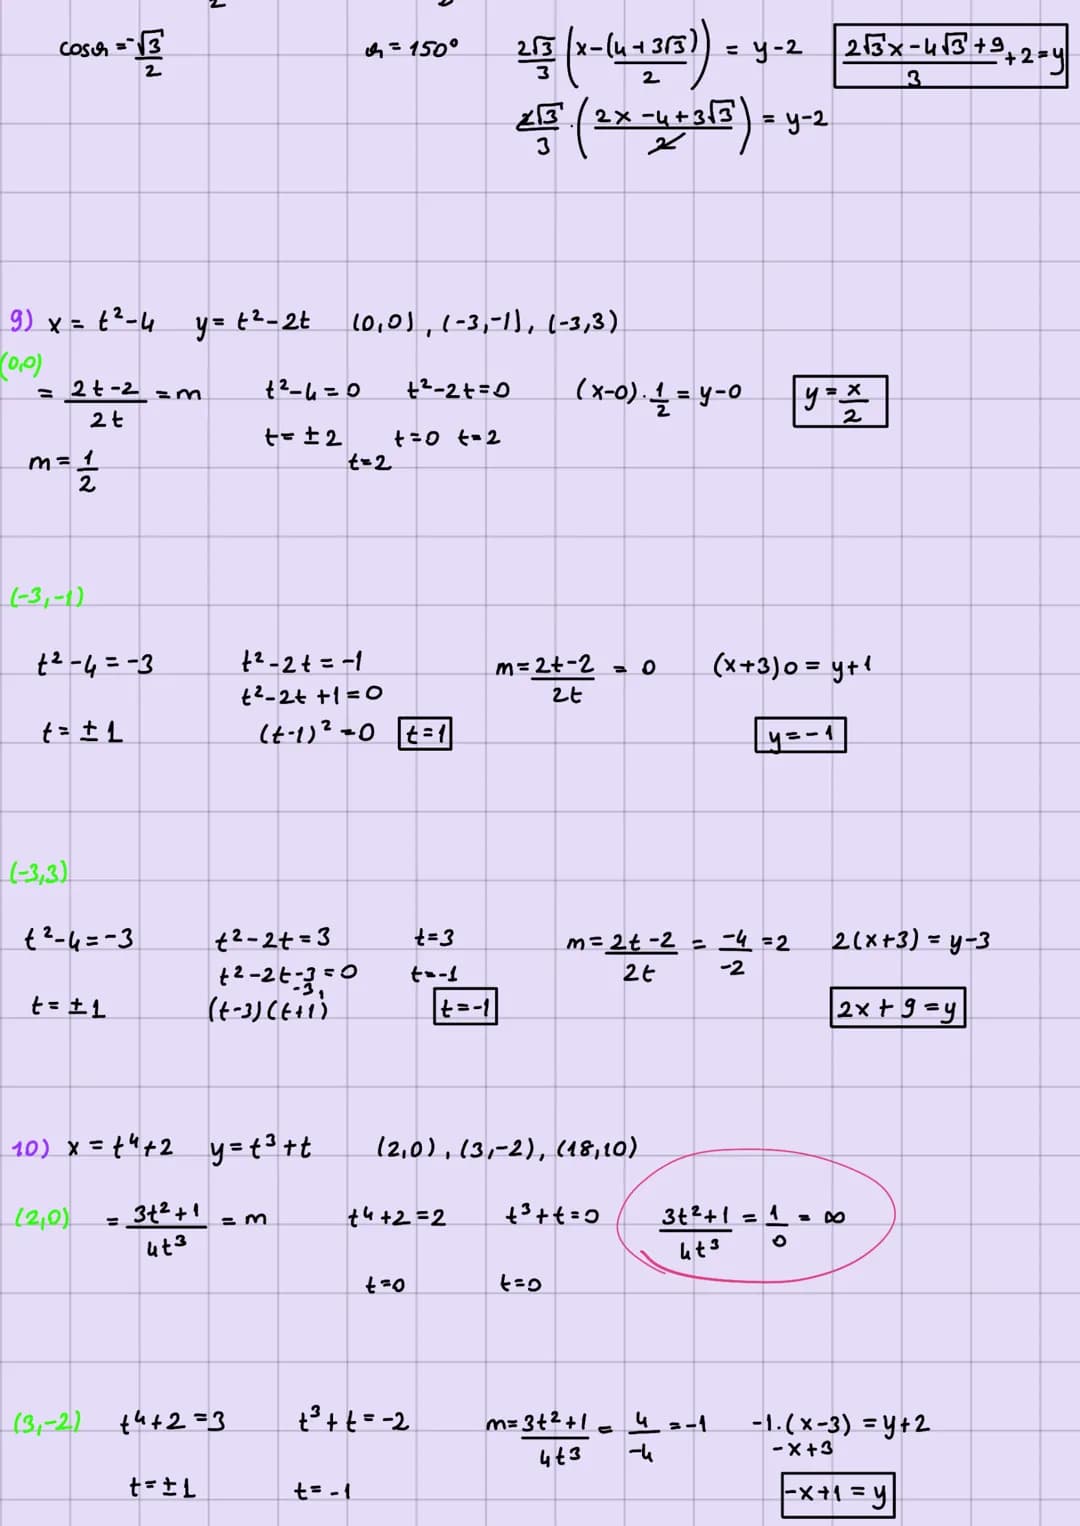 cosθ = -√3/2   θ = 150°   2√3/3 (x-(4+3√3)/2) = y-2   (2√3x-4√3+9)/3 + 2 = y
2√3/3 · ((2x-4+3√3)/2) = y-2
9) x = t²-4   y = t²-2t   (0,0), (-3,-1), (-3,3)
(0,0)
= (2t-2)/2t = m   t²-4=0   t²-2t=0   (x-0)·1/2 = y-0   y = x/2
t = ±2   t=0 t=2
m = 1/2   t=2
(-3,-1)
t²-4 = -3   t²-2t = -1   m = (2t-2)/2t = 0   (x+3)0 = y+1
t²-2t+1=0
t = ±1   (t-1)² = 0   t=1   y = -1
(-3,3)
t²-4=-3   t²-2t=3   t=3   m = (2t-2)/2t = -4/-2 = 2   2(x+3) = y-3
t²-2t-3=0   t=-1
-3 1
t = ±1   (t-3)(t+1)   t=-1   2x+9=y
10) x = t⁴+2   y = t³+t   (2,0), (3,-2), (18,10)
(2,0)   = (3t²+1)/4t³ = m   t⁴+2=2   t³+t=0   (3t²+1)/4t³ = 1/0 = ∞
t=0   t=0
(3,-2)   t⁴+2=3   t³+t=-2   m = (3t²+1)/4t³ = 4/-4 = -1   -1·(x-3) = y+2
-x+3
t=±1   t=-1   -x+1=y